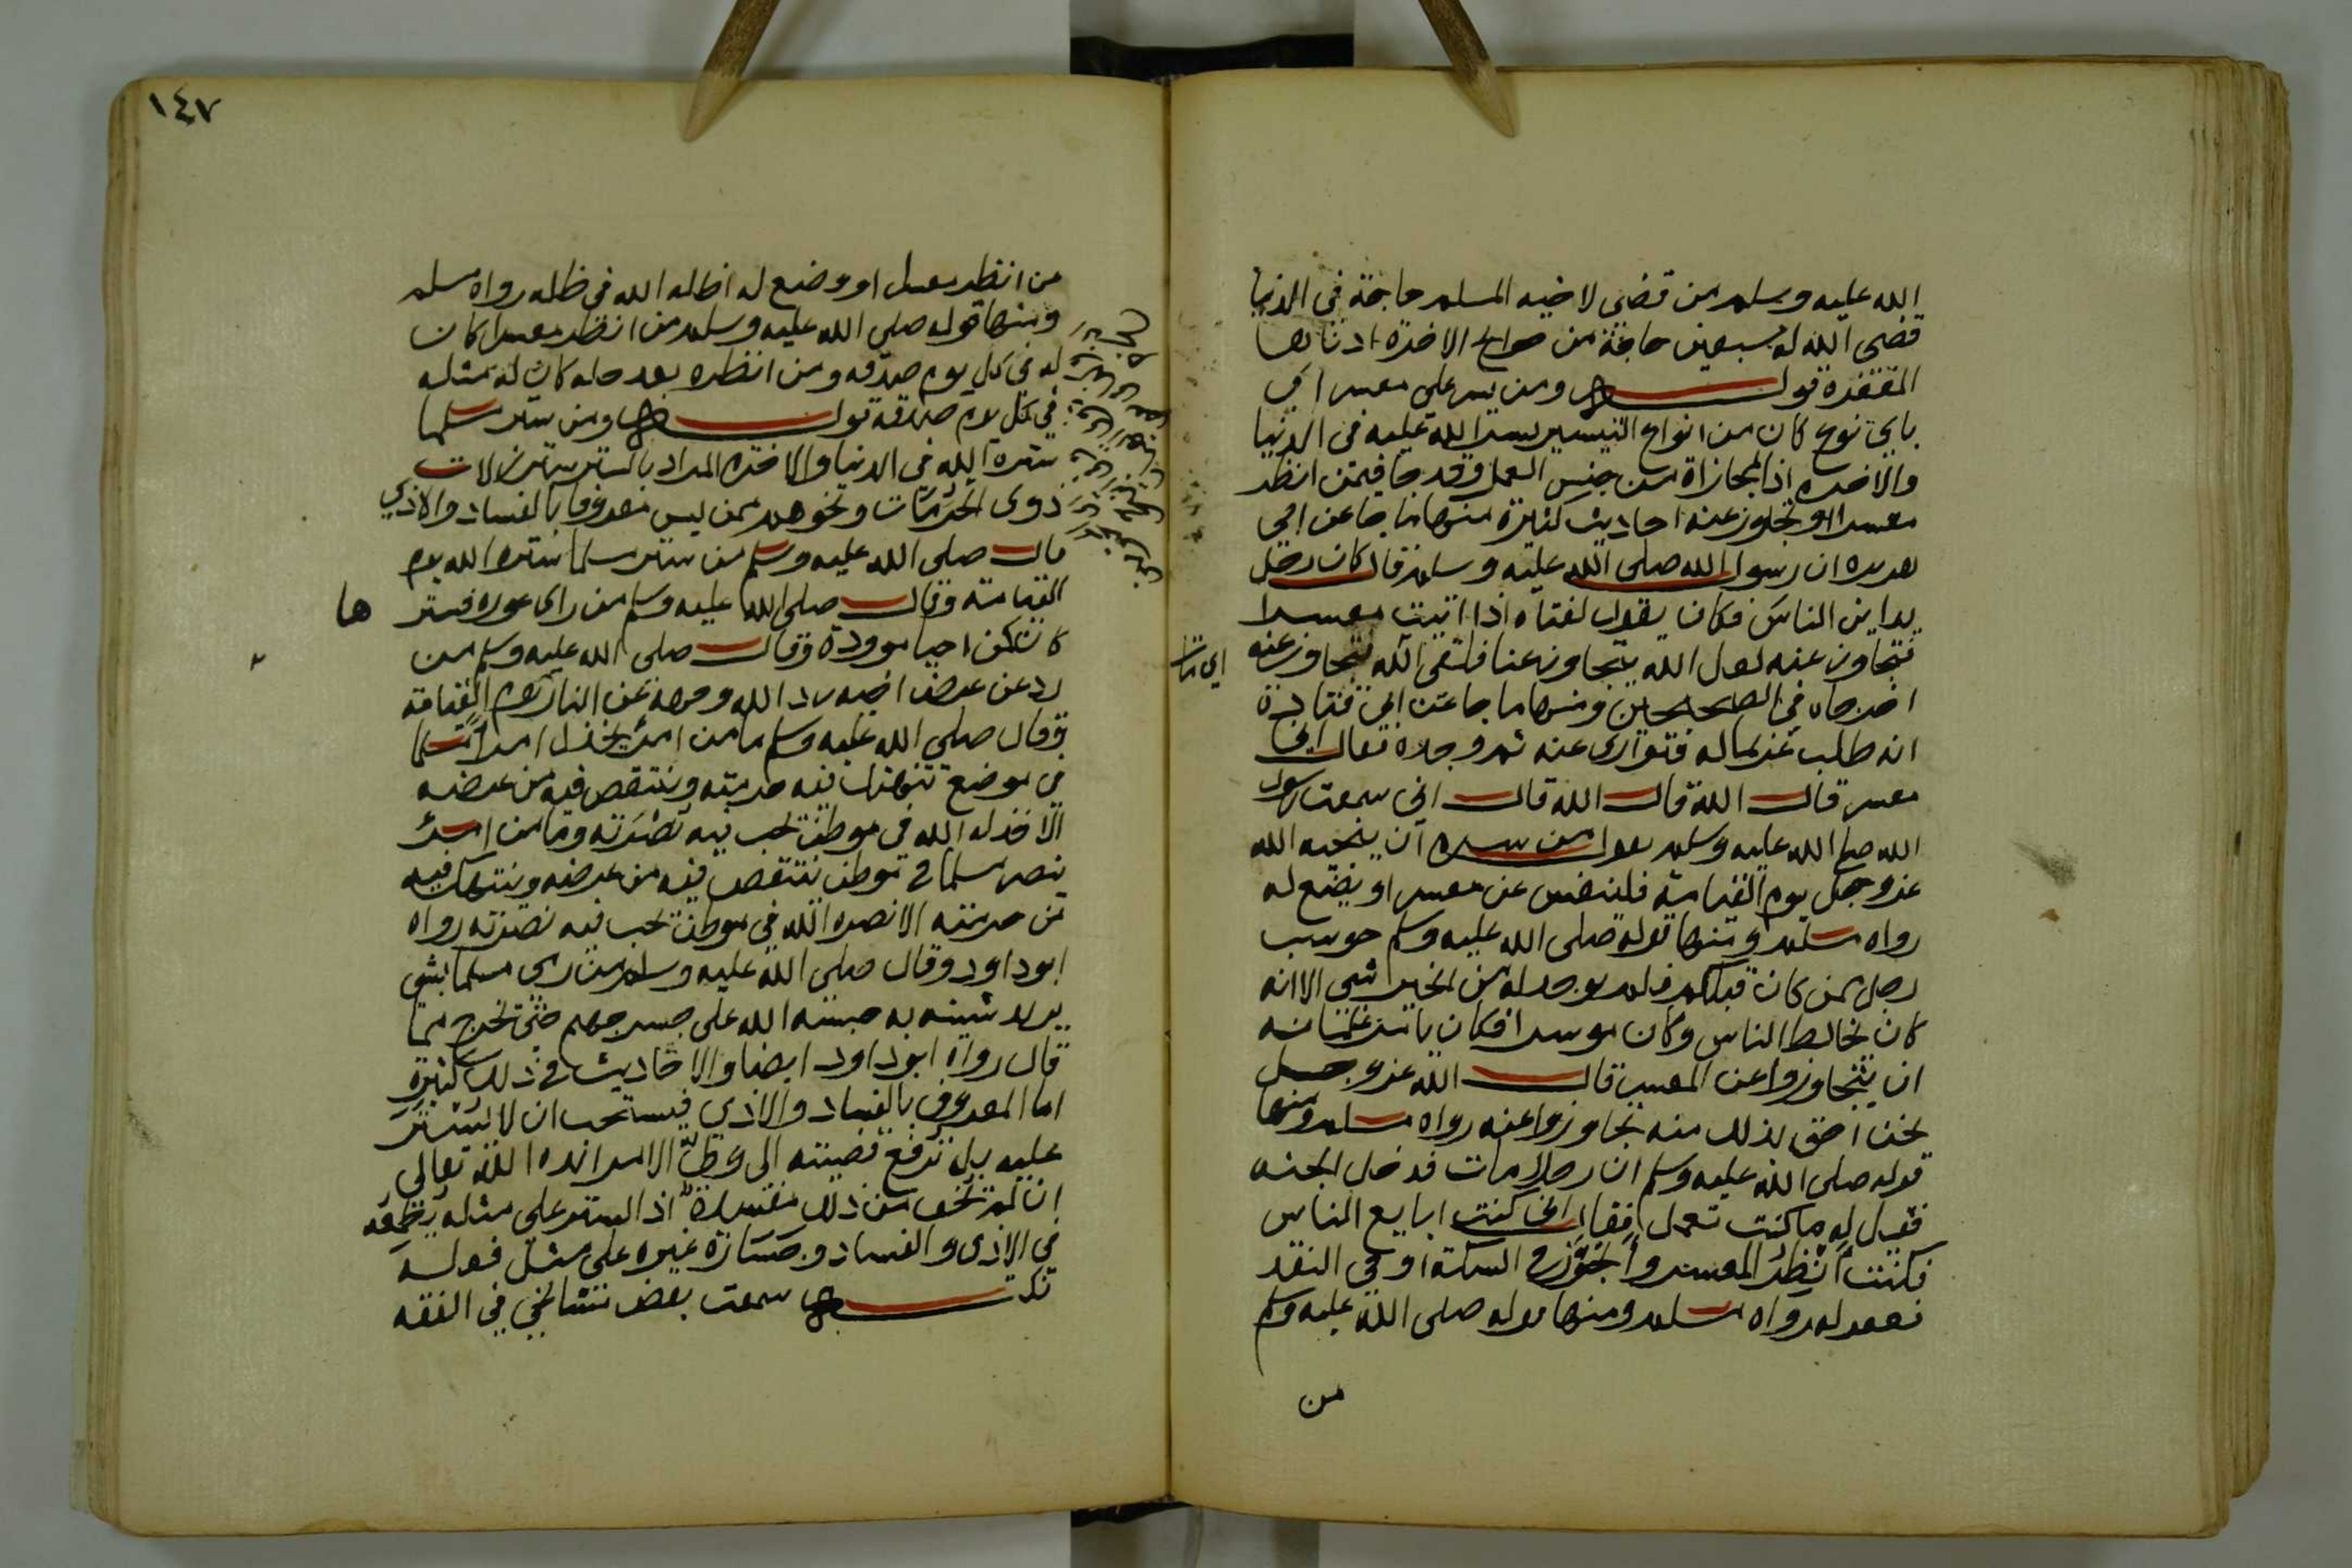 الله عليه وسلم من قضى لاخيه المسلم حاجة في الدنيا
قضى الله له سبعين حاجة من حوايج الاخرة ادناها
المغفرة قوله ومن يسر على معسر اي
باي نوع كان من انواع التيسير يسر الله عليه في الدنيا
والاخره اذ المجازاة من جنس العمل وقد جا فيمن انظر
معسرا او تجاوز عنه احاديث كثيرة منها ما جا عن ابي
هريره ان رسول الله صلى الله عليه وسلم قال كان رجل
يداين الناس فكان يقول لفتاه اذا اتيت معسرا
فتجاوز عنه لعل الله يتجاوز عنا فلقى الله فتجاوز عنه
اي مات
اخرجاه في الصحيحين ومنها ما جا عن ابي قتادة
انه طلب غريما له فتوارى عنه ثم وجده فقال اني
معسر قال الله قال الله قال اني سمعت رسول
الله صلى الله عليه وسلم يقول من سره ان ينجيه الله
عز وجل يوم القيامة فلينفس عن معسر او يضع له
رواه مسلم ومنها قوله صلى الله عليه وسلم حوسب
رجل ممن كان قبلكم فلم يوجد له من الخير شي الا انه
كان يخالط الناس وكان موسرا فكان يامر غلمانه
ان يتجاوزوا عن المعسر قال الله عز وجل
نحن احق بذلك منه تجاوزوا عنه رواه مسلم ومنها
قوله صلى الله عليه وسلم ان رجلا مات فدخل الجنه
فقيل له ما كنت تعمل فقال اني كنت ابايع الناس
فكنت انظر المعسر واتجوز في السكة او في النقد
فغفر له رواه مسلم ومنها قوله صلى الله عليه وسلم
من
١٤٧
من انظر معسرا او وضع له اظله الله في ظله رواه مسلم
ومنها قوله صلى الله عليه وسلم من انظر معسرا كان
له في كل يوم صدقه ومن انظره بعد حله كان له مثله
في كل يوم صدقة قوله ومن ستر مسلما
ستره الله في الدنيا والاخره المراد بالستر ستر زلات
ذوي الحرمات ونحوهم ممن ليس معروفا بالفساد والاذي
قال صلى الله عليه وسلم من ستر مسلما ستره الله يوم
القيامة وقال صلى الله عليه وسلم من راى عوره فستر ها
كان كمن احيا موودة وقال صلى الله عليه وسلم من
رد عن عرض اخيه رد الله وجهه عن النار يوم القيامة
وقال صلى الله عليه وسلم ما من امرئ يخذل امرأ مسلما
في موضع تنتهك فيه حرمته وينتقص فيه من عرضه
الا خذله الله في موطن يحب فيه نصرته وما من امرئ
ينصر مسلما في موطن ينتقص فيه من عرضه وينتهك فيه
من حرمته الا نصره الله في موطن يحب فيه نصرته رواه
ابو داود وقال صلى الله عليه وسلم من رمى مسلما بشي
يريد شينه به حبسه الله على جسر جهنم حتى يخرج مما
قال رواه ابو داود ايضا والاحاديث في ذلك كثيرة
اما المعروف بالفساد والاذى فيستحب ان لا يستر
عليه بل ترفع قضيته الى ولي الامر ايده الله تعالى
ان لم تخف من ذلك مفسدة اذ الستر على مثله يطمعه
في الاذى والفساد وجسارة غيره على مثل فعله
تكـ سمعت بعض مشايخي في الفقه